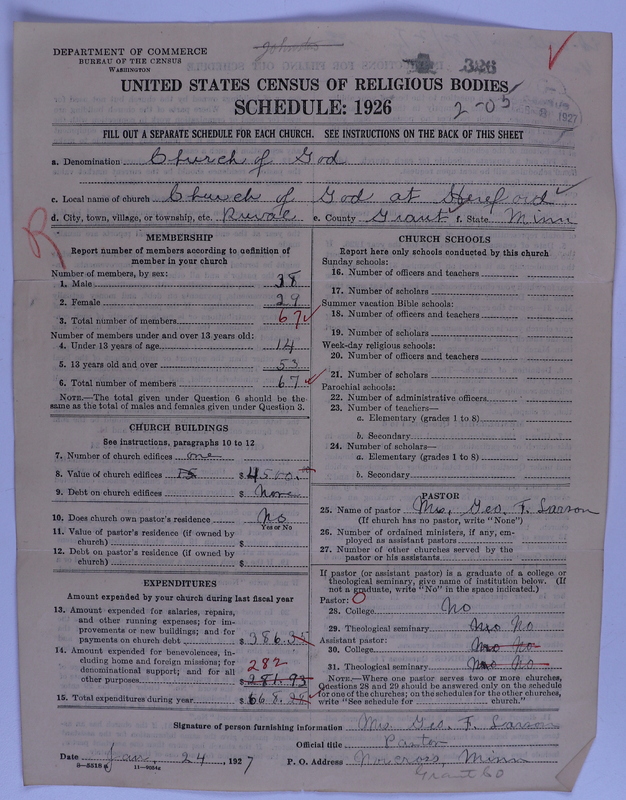 DEPARTMENT OF COMMERCE
BUREAU OF THE CENSUS
WASHINGTON
326
UNITED STATES CENSUS OF RELIGIOUS BODIES
SCHEDULE: 1926
2-05
1927
FILL OUT A SEPARATE SCHEDULE FOR EACH CHURCH. SEE INSTRUCTIONS ON THE BACK OF THIS SHEET
a. Denomination Church of God
c. Local name of church Church of God at Hereford
d. City, town, village, or township, etc. Rural e. County Grant f. State Minn
R
MEMBERSHIP
Report number of members according to definition of
member in your church
Number of members, by sex:
1. Male 38
2. Female 29
3. Total number of members 67
Number of members under and over 13 years old:
4. Under 13 years of age 14
5. 13 years old and over 53
6. Total number of members 67
NOTE.—The total given under Question 6 should be the
same as the total of males and females given under Question 3.
CHURCH BUILDINGS
See instructions, paragraphs 10 to 12
7. Number of church edifices one
8. Value of church edifices 15 $ 4500.
9. Debt on church edifices $ None
10. Does church own pastor's residence No
Yes or No
11. Value of pastor's residence (if owned by
church) $
12. Debt on pastor's residence (if owned by
church) $
EXPENDITURES
Amount expended by your church during last fiscal year
13. Amount expended for salaries, repairs,
and other running expenses; for im-
provements or new buildings; and for
payments on church debt $ 386.
14. Amount expended for benevolences, in-
cluding home and foreign missions; for
denominational support; and for all 282
other purposes $ 281.93
15. Total expenditures during year $ 668.
CHURCH SCHOOLS
Report here only schools conducted by this church
Sunday schools:
16. Number of officers and teachers
17. Number of scholars
Summer vacation Bible schools:
18. Number of officers and teachers
19. Number of scholars
Week-day religious schools:
20. Number of officers and teachers
21. Number of scholars
Parochial schools:
22. Number of administrative officers
23. Number of teachers—
a. Elementary (grades 1 to 8)
b. Secondary
24. Number of scholars—
a. Elementary (grades 1 to 8)
b. Secondary
PASTOR
25. Name of pastor Mrs. Geo. F. Larson
(If church has no pastor, write "None")
26. Number of ordained ministers, if any, em-
ployed as assistant pastors
27. Number of other churches served by the
pastor or his assistants
If pastor (or assistant pastor) is a graduate of a college or
theological seminary, give name of institution below. (If
not a graduate, write "No" in the space indicated.)
Pastor: O
28. College No
29. Theological seminary No
Assistant pastor:
30. College No
31. Theological seminary No
NOTE.—Where one pastor serves two or more churches,
Questions 28 and 29 should be answered only on the schedule
for one of the churches; on the schedules for the other churches,
write "See schedule for church."
Signature of person furnishing information Mrs. Geo. F. Larson
Official title Pastor
Date Jan. 24, 1927 P. O. Address Norcross, Minn
8-5518 a 11-9034c Grant Co